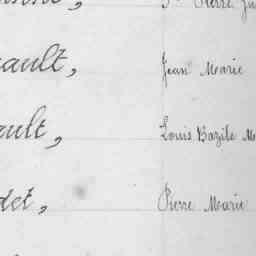 Pierre
ault, Jean Marie
ault, Louis Bazile
det, Pierre Marie